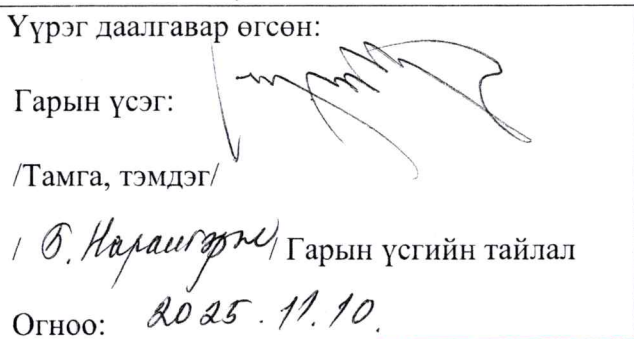 Үүрэг даалгавар өгсөн:
Гарын үсэг:
/Тамга, тэмдэг/
/ Б. Нарангэрэл / Гарын үсгийн тайлал
Огноо: 2025.11.10.